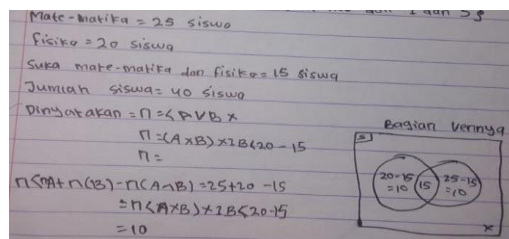 Mate-matika = 25 siswa
fisika = 20 siswa
Suka mate-matika dan fisika = 15 siswa
Jumlah siswa = 40 siswa
Dinyatakan = n = < A V B x
n = (A x B) x 2B < 20 - 15
n =
n < nA + n(B) - n(A ∩ B) = 25 + 20 - 15
= n < A x B) x 2B < 20 - 15
= 10
Bagian Vennya
S
20 - 15 = 10
15
25 - 15 = 10
x